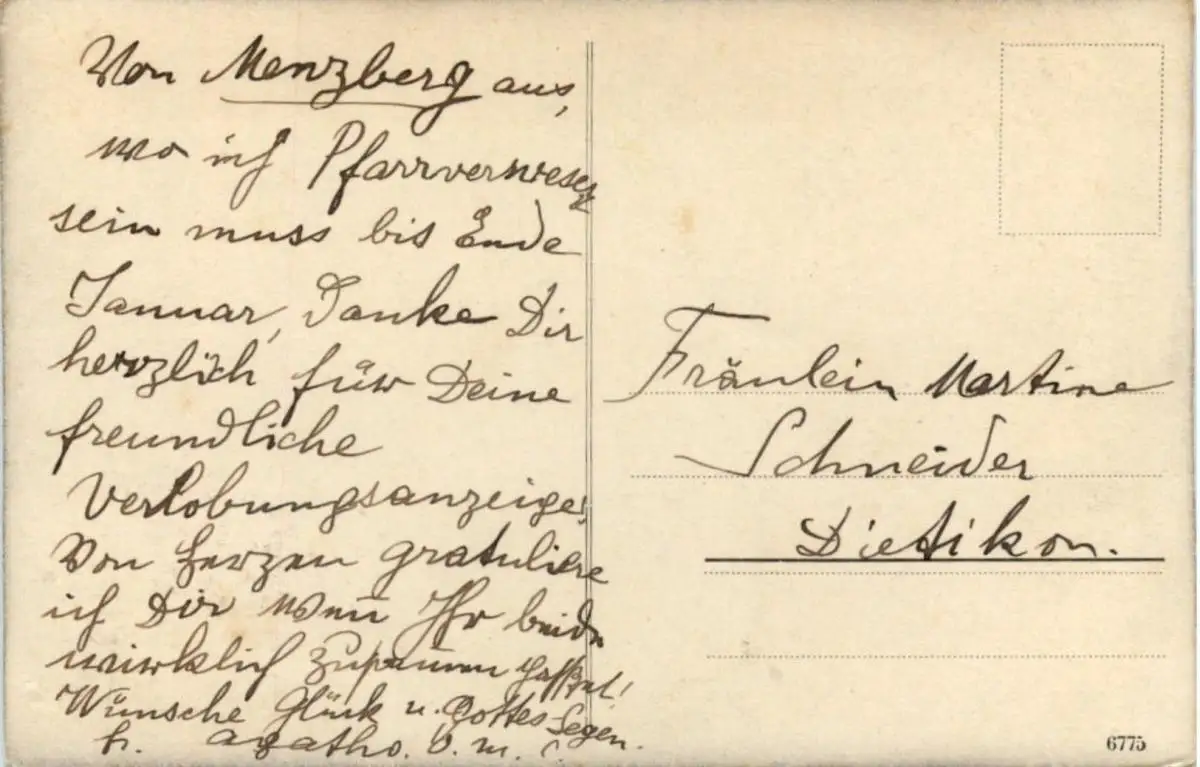 Von Menzberg aus,
wo ich Pfarrverweser
sein muss bis Ende
Januar, Danke Dir
herzlich für Deine
freundliche
Verlobungsanzeige!
Von Herzen gratuliere
ich Dir wenn Ihr beide
wirklich zusammen passet!
Wünsche Glück u. Gottes Segen.
P. Agatho. O. M. C.
Fräulein Martine
Schneider
Dietikon.
6775